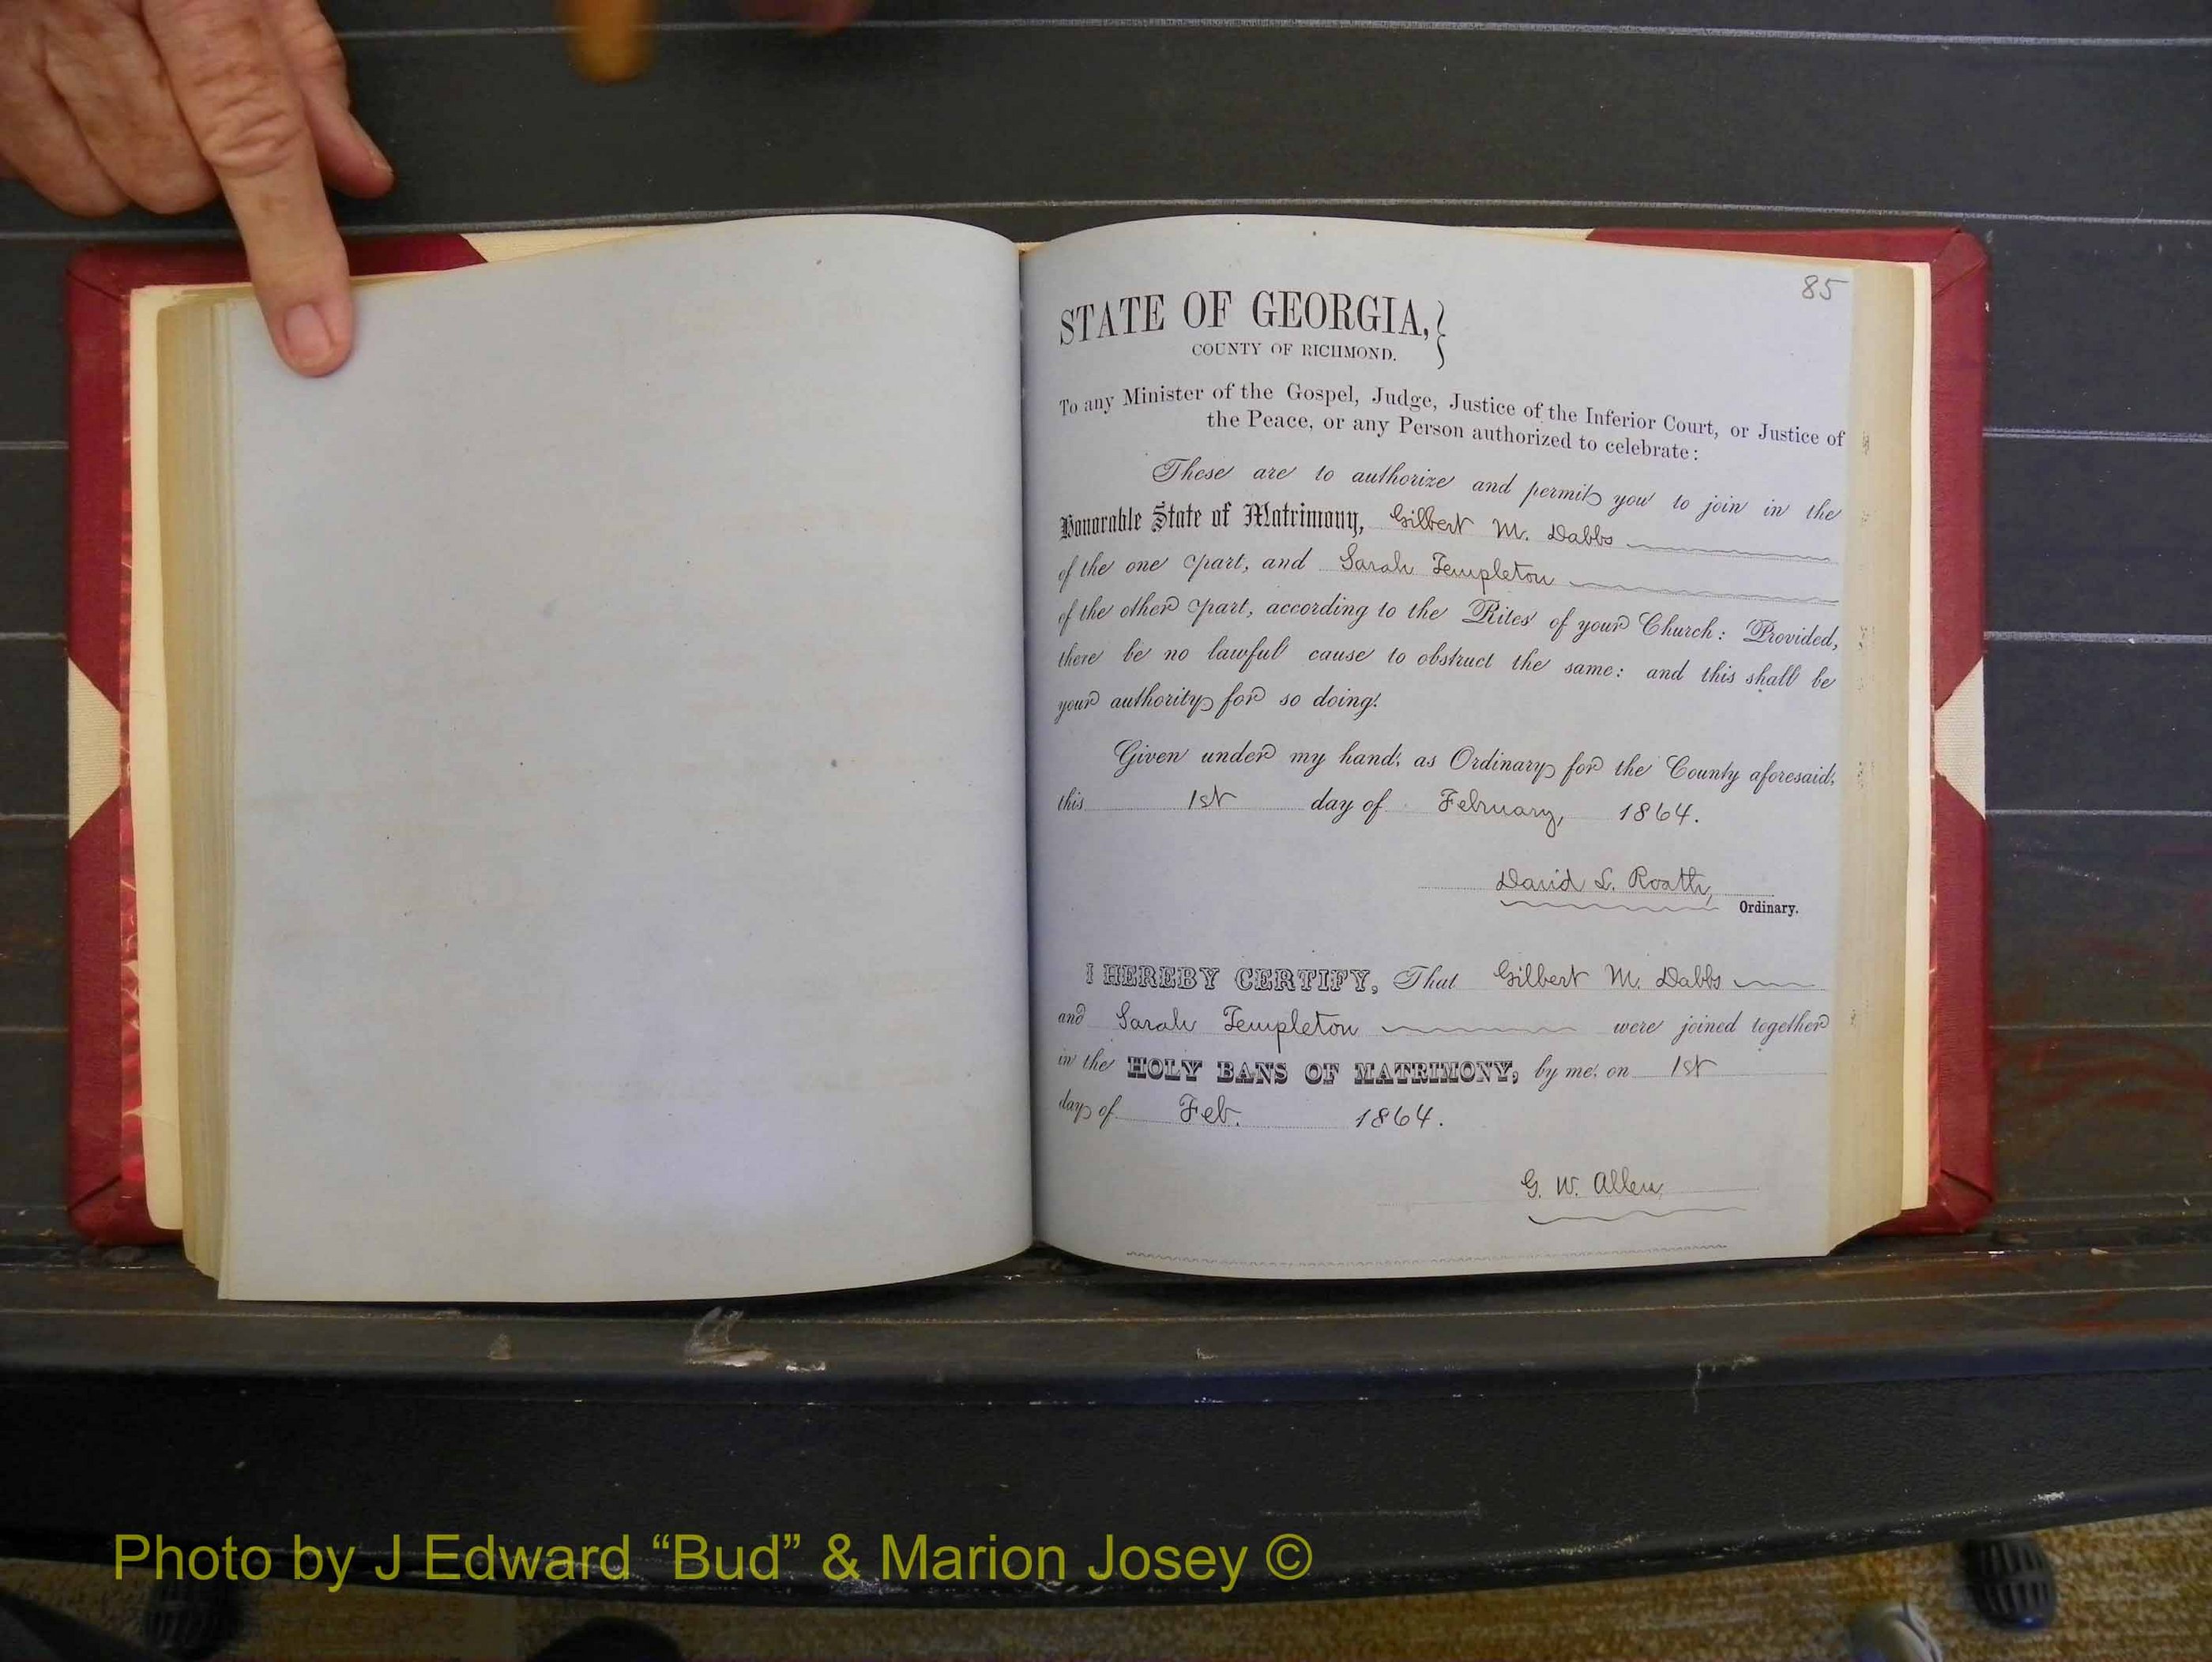 85
STATE OF GEORGIA,
COUNTY OF RICHMOND.
To any Minister of the Gospel, Judge, Justice of the Inferior Court, or Justice of
the Peace, or any Person authorized to celebrate:
These are to authorize and permit you to join in the
Honorable State of Matrimony, Gilbert M. Dabbs
of the one part, and Sarah Templeton
of the other part, according to the Rites of your Church: Provided,
there be no lawful cause to obstruct the same: and this shall be
your authority for so doing.
Given under my hand, as Ordinary for the County aforesaid,
this 1st day of February, 1864.
David L. Roath,
Ordinary.
I HEREBY CERTIFY, That Gilbert M. Dabbs
and Sarah Templeton were joined together
in the HOLY BANS OF MATRIMONY, by me, on 1st
day of Feb. 1864.
G. W. Allen
Photo by J Edward “Bud” & Marion Josey ©